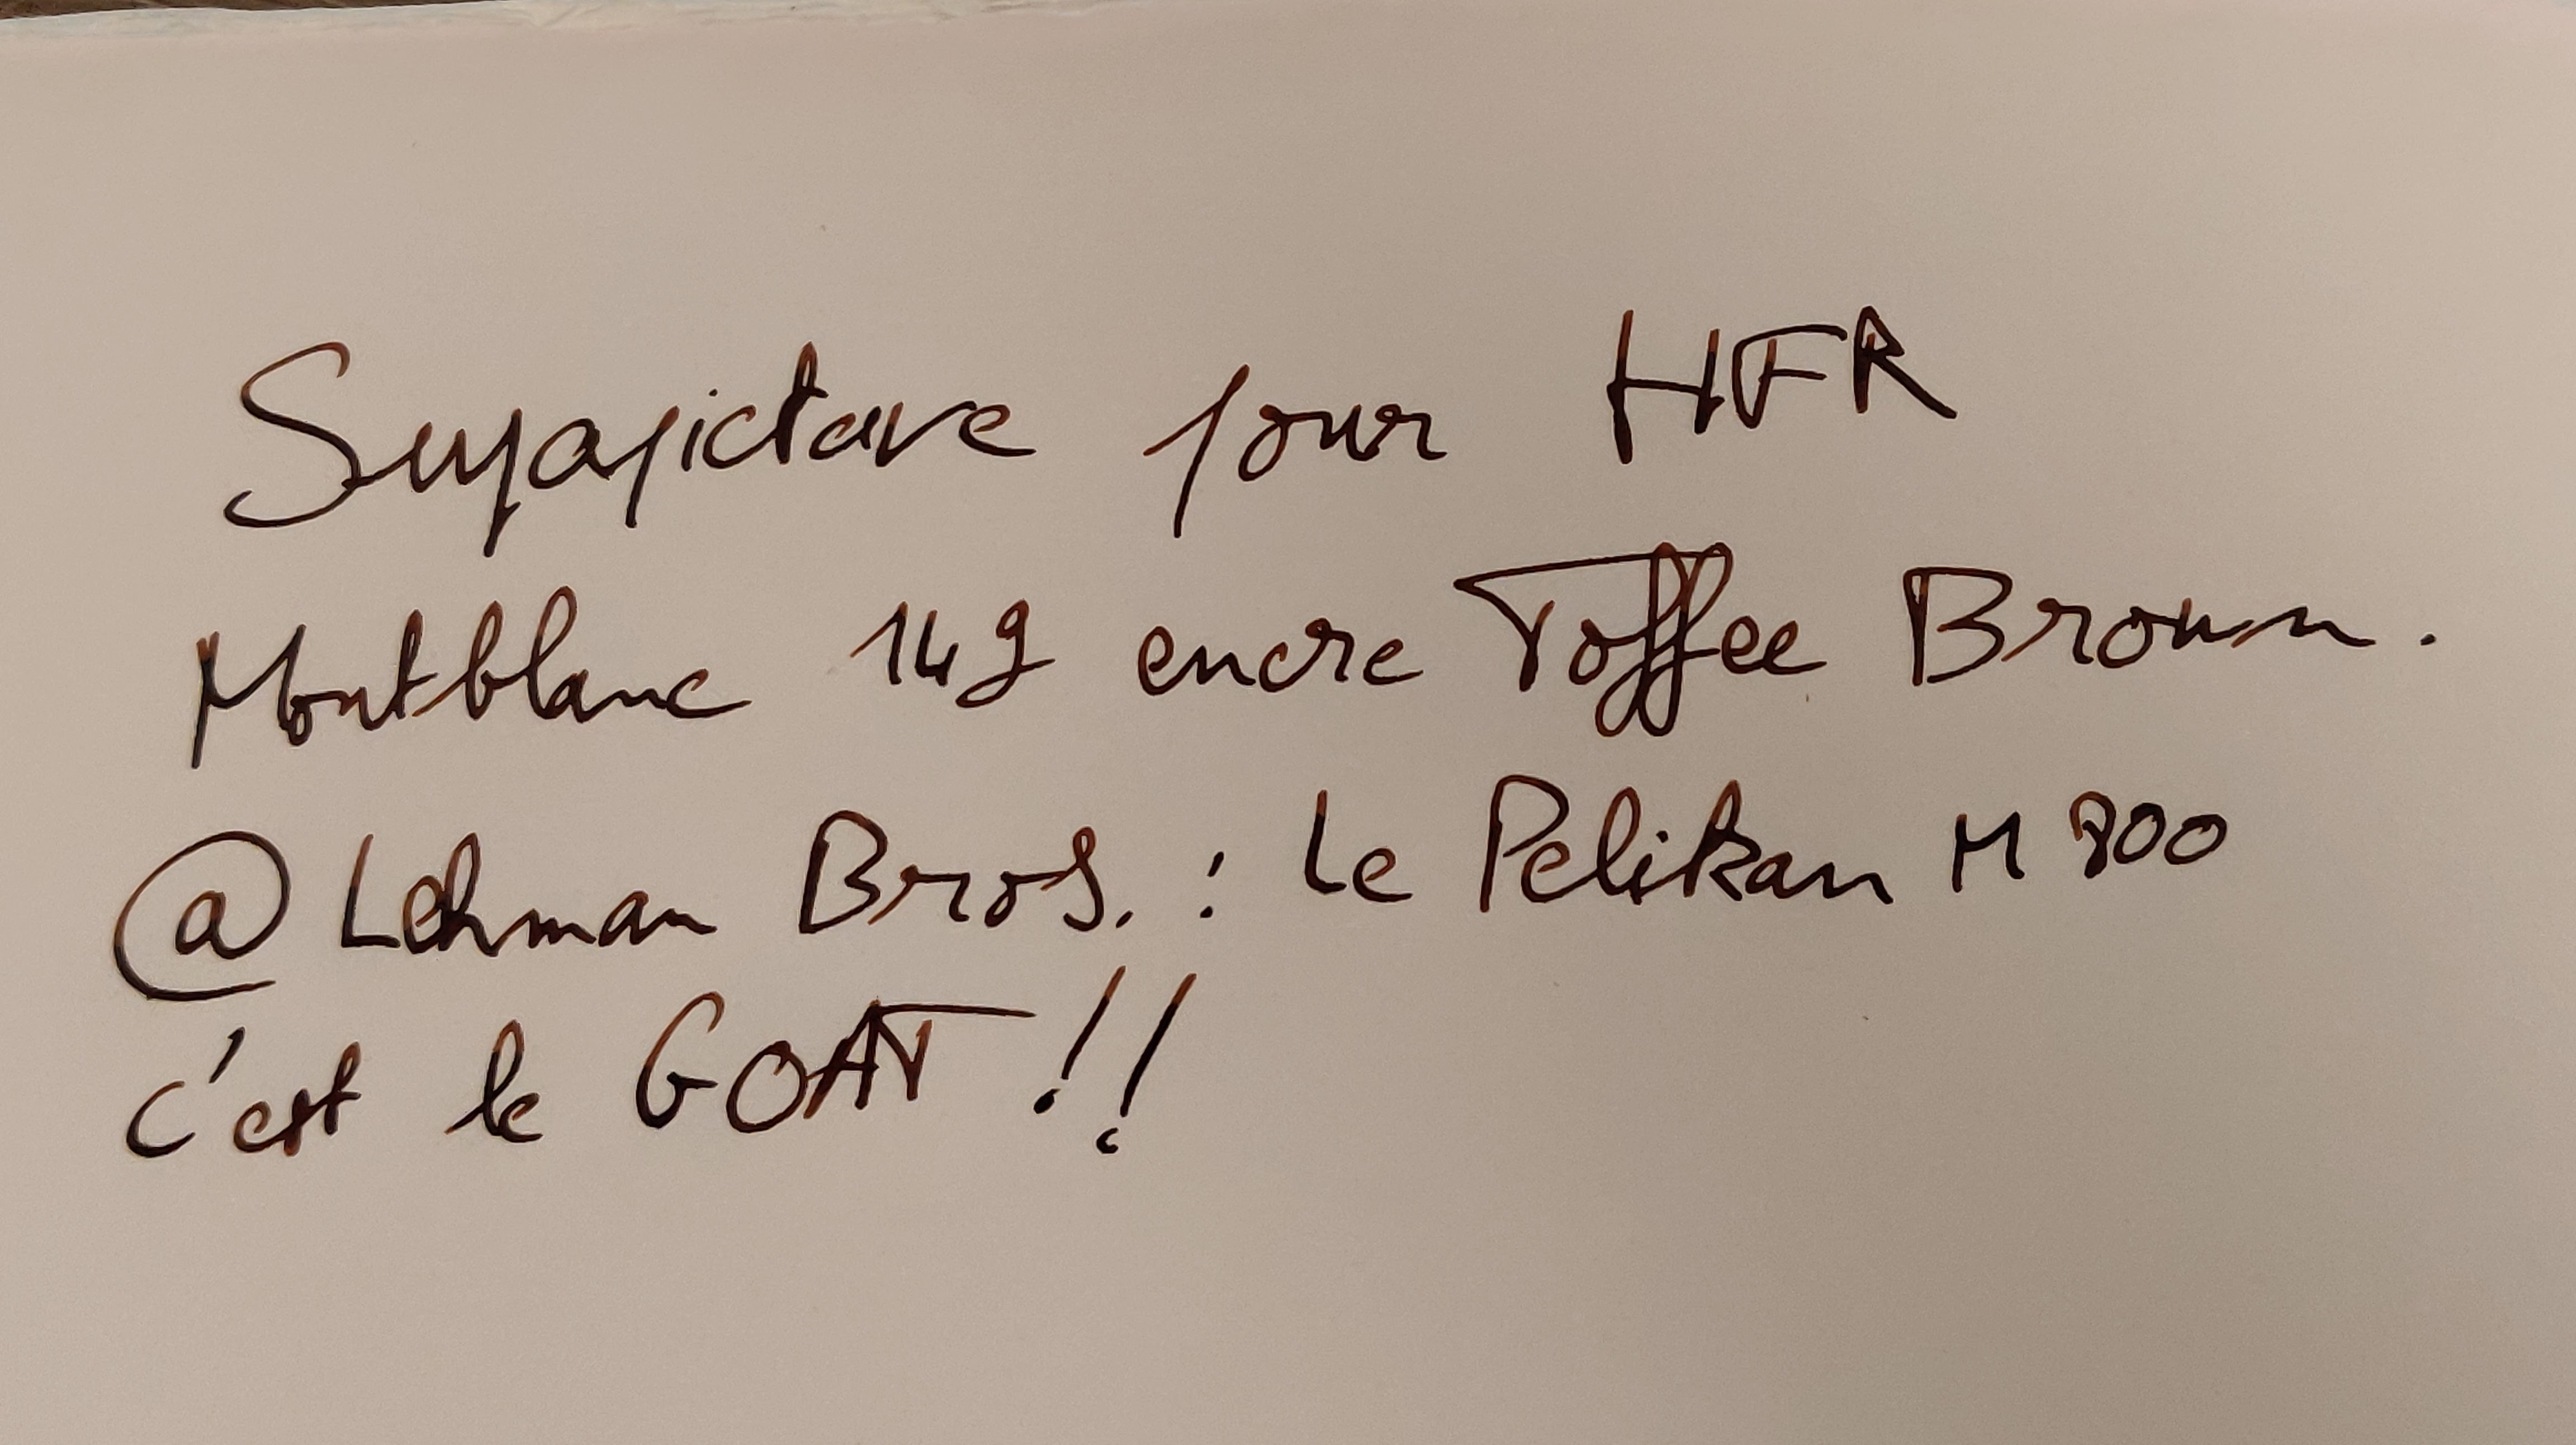 Supapictave pour HFR
Montblanc 149 encre Toffee Brown.
@Lehman Bros. : Le Pelikan M800
c'est le GOAT !!